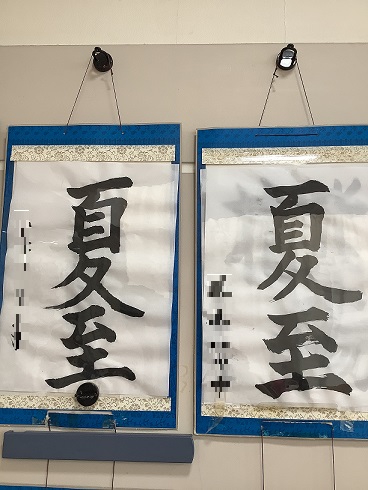 夏至
夏至